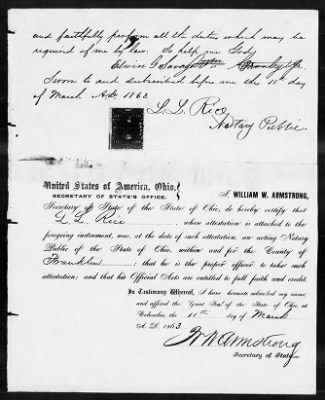 and faithfully perform all the duties which may be
required of me by law. So help me God,
Edwin G Savage
Sworn to and subscribed before me this 11th day
of March A.D. 1863.
L. L. Rice
Notary Public
United States of America, Ohio,
SECRETARY OF STATE'S OFFICE.
I, WILLIAM W. ARMSTRONG,
Secretary of State of the State of Ohio, do hereby certify that
L L Rice whose attestation is attached to the
foregoing instrument, was, at the date of such attestation, an acting Notary
Public of the State of Ohio, within and for the County of
Franklin; that he is the proper officer to take such
attestation; and that his Official Acts are entitled to full faith and credit.
In Testimony Whereof, I have hereunto subscribed my name,
and affixed the Great Seal of the State of Ohio, at
Columbus, the 11th day of March
A. D. 1863.
W W Armstrong
Secretary of State